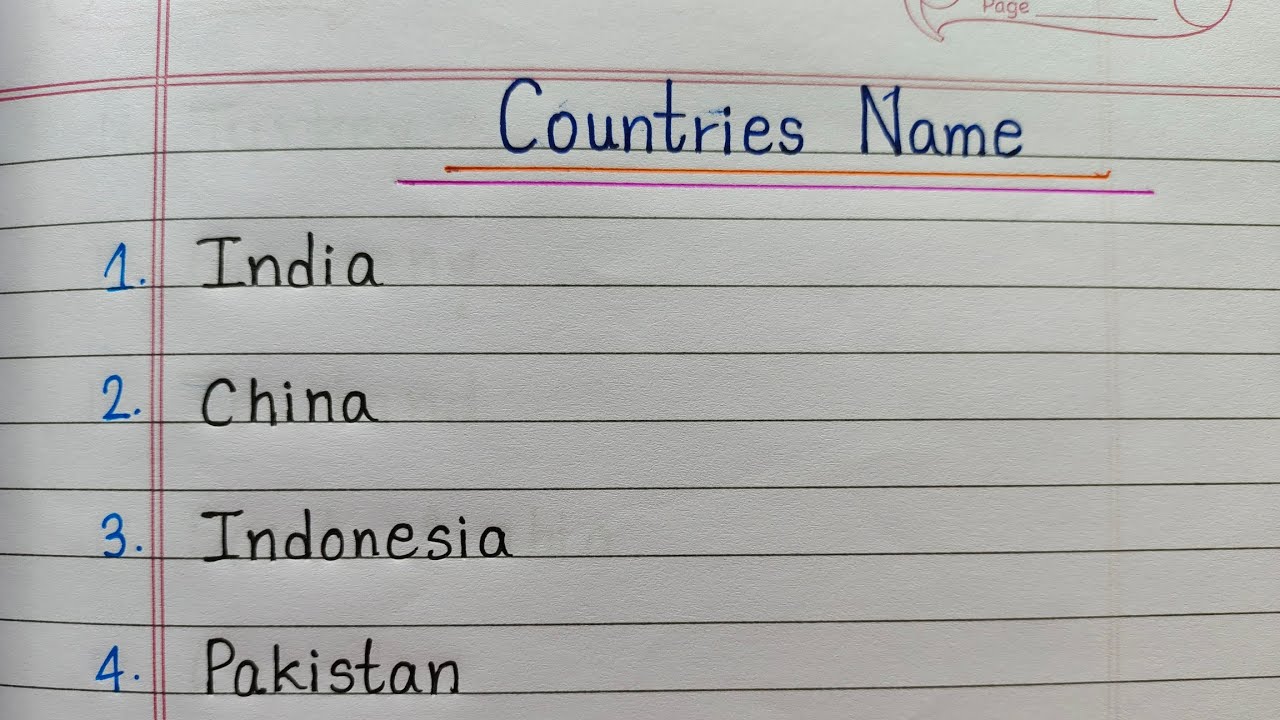 Page
Countries Name
1. India
2. China
3. Indonesia
4. Pakistan